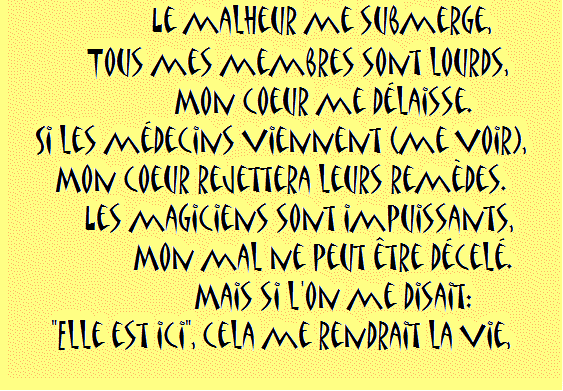 LE MALHEUR ME SUBMERGE,
TOUS MES MEMBRES SONT LOURDS,
MON COEUR ME DÉLAISSE.
SI LES MÉDECINS VIENNENT (ME VOIR),
MON COEUR REJETTERA LEURS REMÈDES.
LES MAGICIENS SONT IMPUISSANTS,
MON MAL NE PEUT ÊTRE DÉCELÉ.
MAIS SI L'ON ME DISAIT:
"ELLE EST ICI", CELA ME RENDRAIT LA VIE,